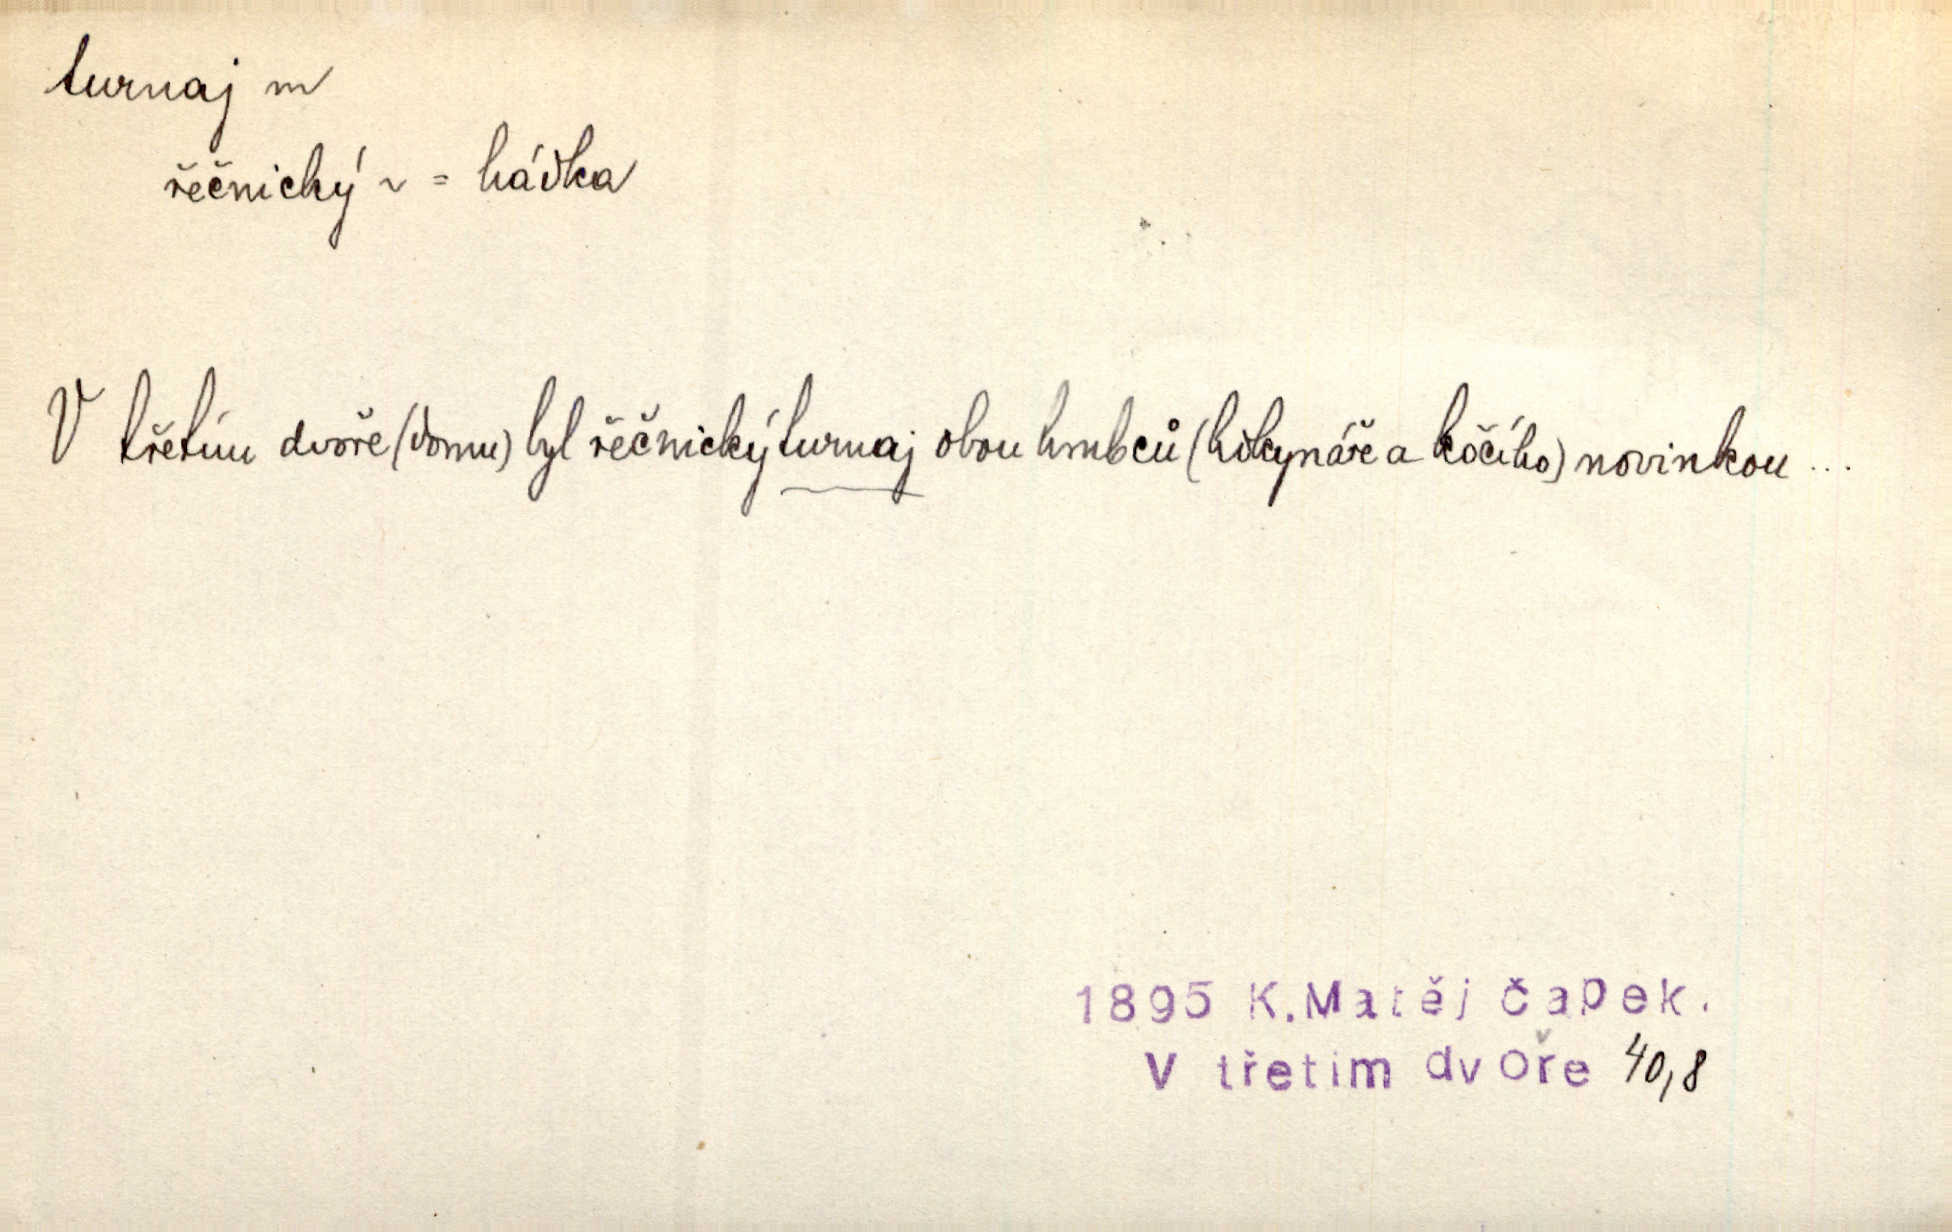 turnaj m
řečnický ~ = hádka
V třetím dvoře (domu) byl řečnický turnaj obou kmotců (hokynáře a kočího) novinkou ...
1895 K. Matěj Čapek.
V třetim dvoře 40,8